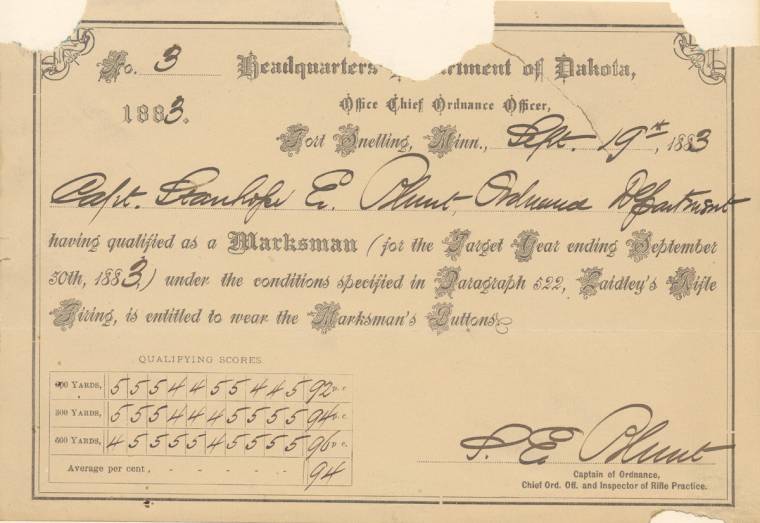 No. 3 Headquarters rtment of Dakota,
1883. Office Chief Ordnance Officer,
Fort Snelling, Minn., Sept. 19th, 1883
Capt. Stanhope E. Blunt, Ordnance Department
having qualified as a Marksman (for the Target Year ending September
30th, 1883,) under the conditions specified in Paragraph 522, Laidley's Rifle
Firing, is entitled to wear the Marksman's Buttons
QUALIFYING SCORES
YARDS, 5 5 5 4 4 5 5 4 4 5 92 p. c.
300 YARDS, 5 5 5 4 4 4 5 5 5 5 94 p. c.
600 YARDS, 4 5 5 5 5 4 5 5 5 5 96 p. c.
Average per cent, - - - - - 94
S. E. Blunt
Captain of Ordnance,
Chief Ord. Off. and Inspector of Rifle Practice.